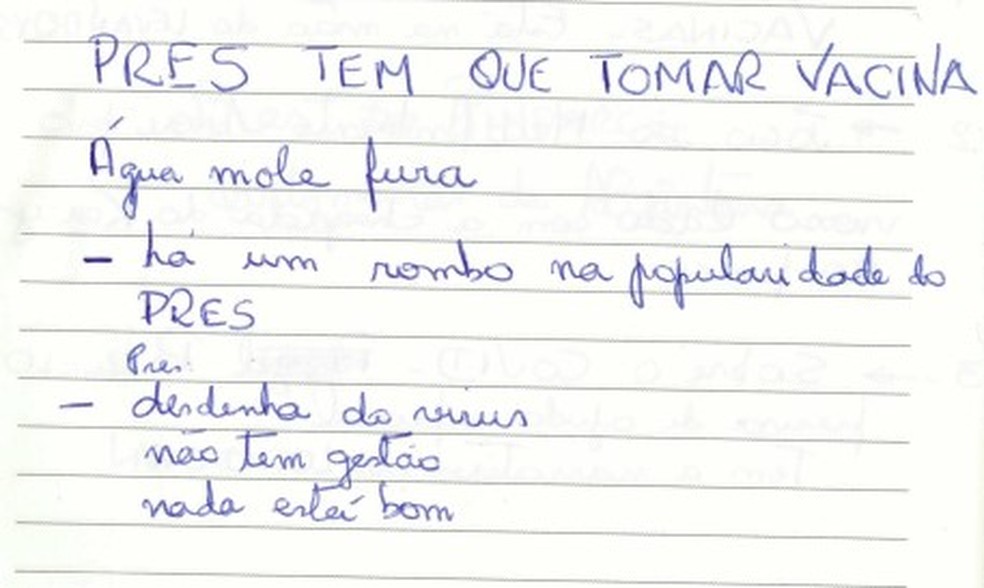 PRES TEM QUE TOMAR VACINA
Água mole fura
- há um rombo na popularidade do
PRES
Pres.
- desdenha do virus
não tem gestão
nada está bom